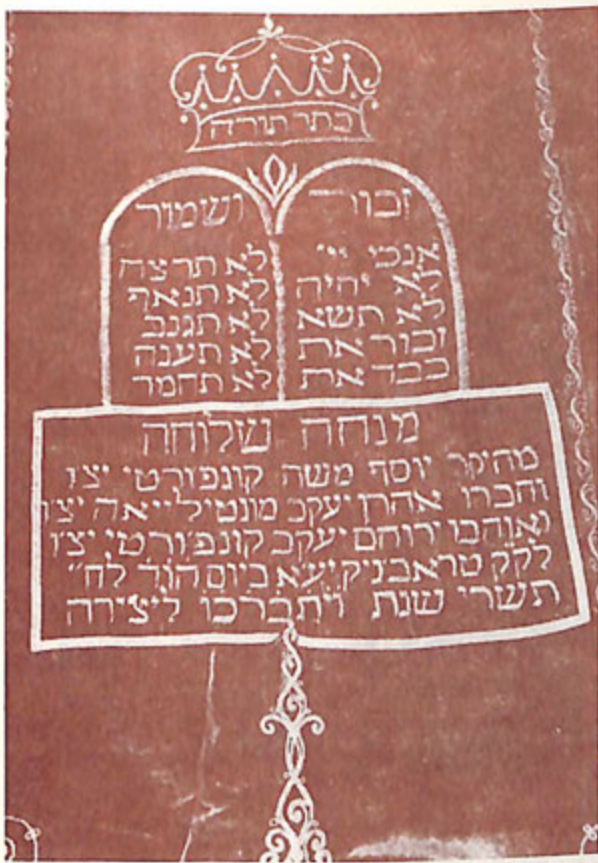 כתר תורה
זכור ושמור
אנכי יי'
לא יהיה
לא תשא
זכור את
כבד את
לא תרצח
לא תנאף
לא תגנב
לא תענה
לא תחמד
מנחה שלוחה
מהיקר יוסף משה קונפורטי יצו
וחברו אהרן יעקב מונטילייאה יצ'ו
ואוהבו ירוחם יעקב קונפ'ורטי יצ'ו
לקק טראבניק יע'א ביום הוד לח"
תשרי שנת ויתברכו ליצירה